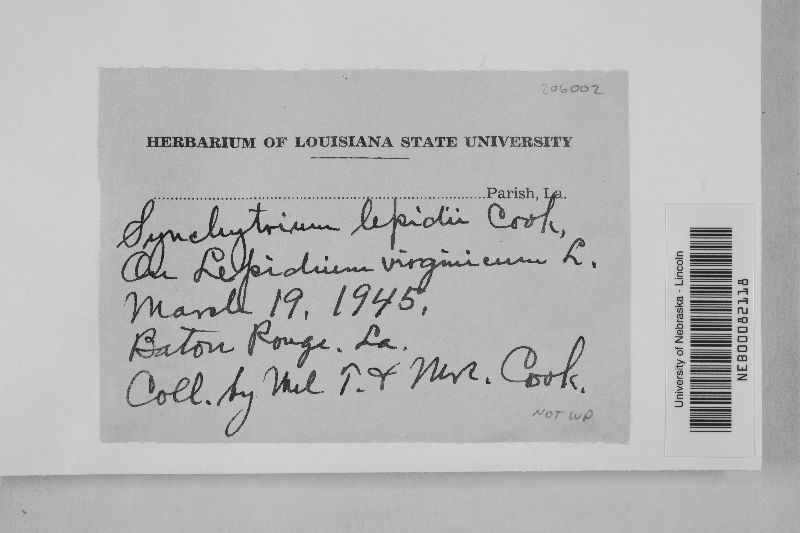 206002
HERBARIUM OF LOUISIANA STATE UNIVERSITY
Parish, La.
Synchytrium lepidii Cook,
On Lepidium virginicum L.
March 19, 1945,
Baton Rouge. La.
Coll. by Mel T. & Mrs. Cook.
NOT WP
University of Nebraska - Lincoln
NEB00082118